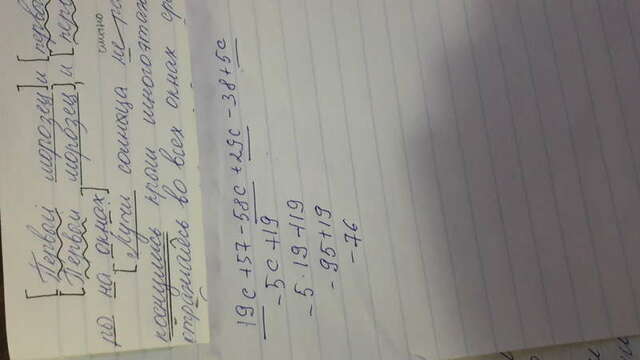 [Первый морозец] и [перво
[Первый морозец], и [пер
ры на окнах]
слитно
[Лучи солнца не
коснулись крыш многоэтаж
отражаясь во всех окнах
19c + 57 - 58c + 29c - 38 + 5c
- 5c + 19
- 5 · 19 + 19
- 95 + 19
- 76